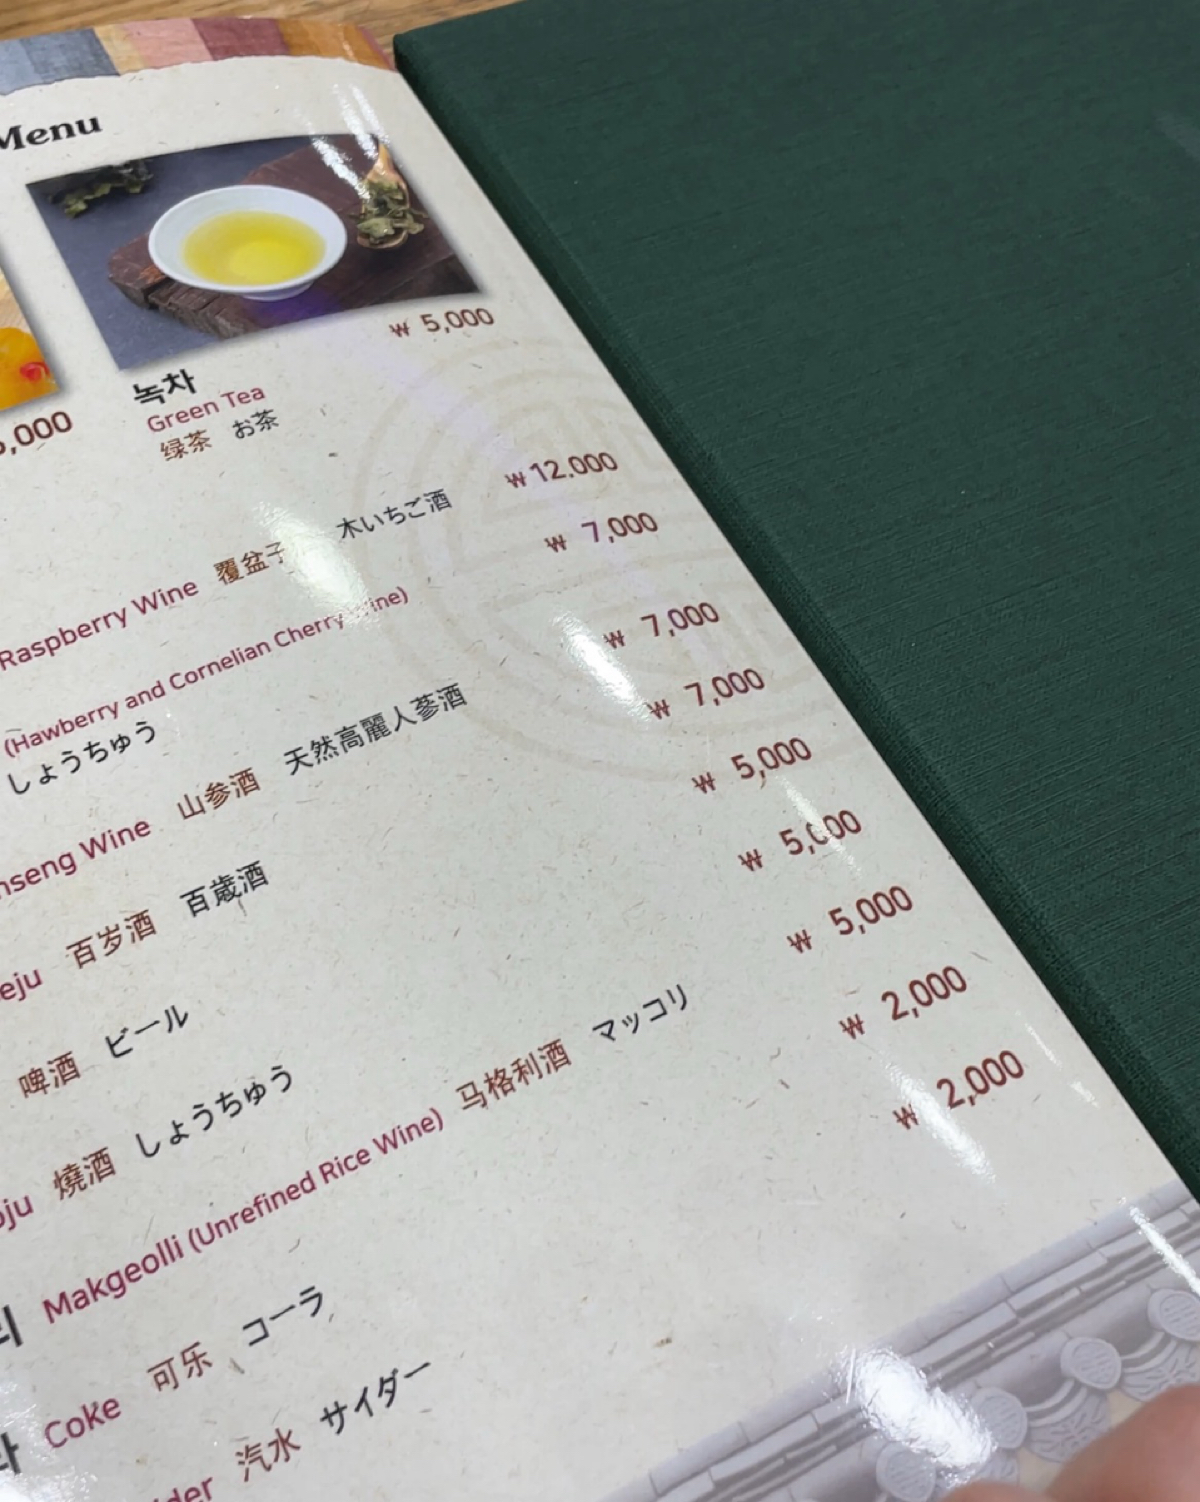 Menu
₩ 5,000
녹차
Green Tea
绿茶 お茶
,000
Raspberry Wine 覆盆子 木いちご酒 ₩12,000
(Hawberry and Cornelian Cherry Wine) ₩ 7,000
しょうちゅう
Wine 山参酒 天然高麗人蔘酒 ₩ 7,000
百岁酒 百歳酒 ₩ 7,000
啤酒 ビール ₩ 5,000
燒酒 しょうちゅう ₩ 5,000
Makgeolli (Unrefined Rice Wine) 马格利酒 マッコリ ₩ 5,000
Coke 可乐 コーラ ₩ 2,000
汽水 サイダー ₩ 2,000